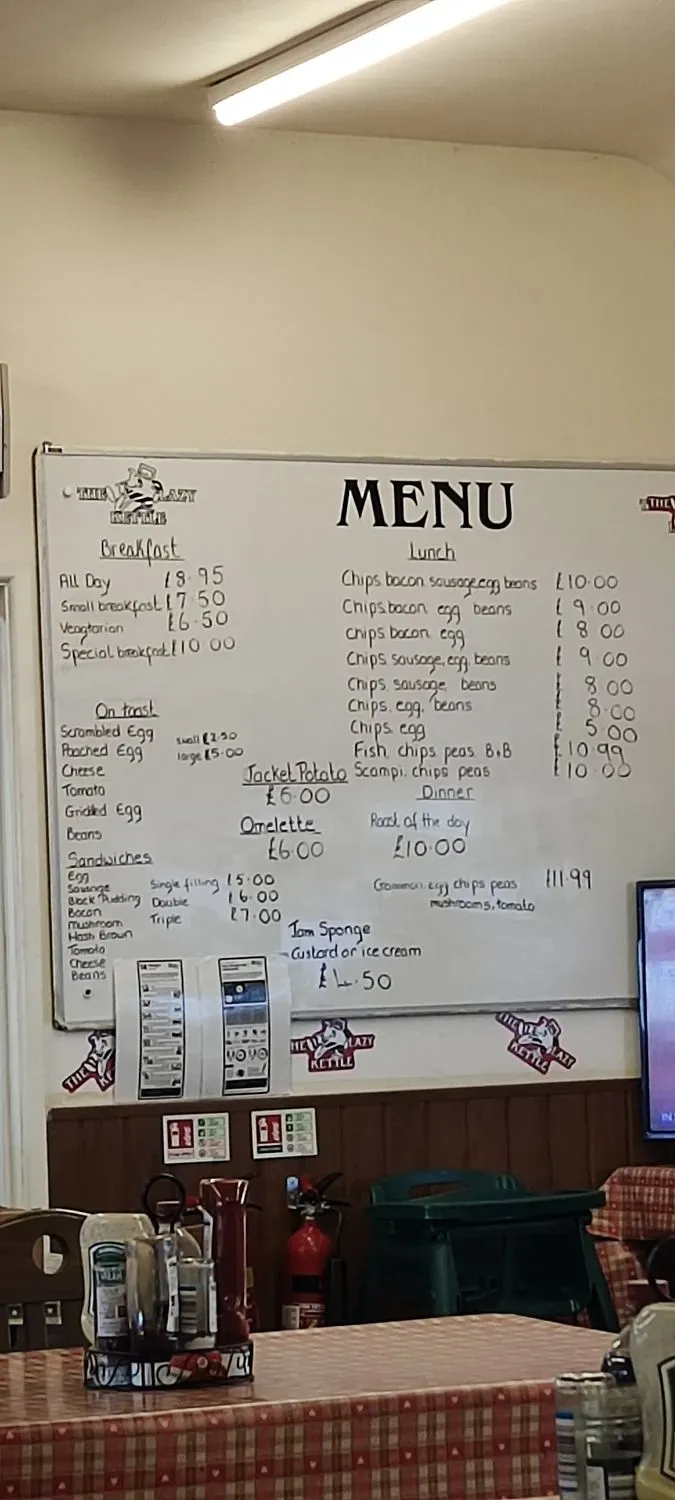 THE LAZY
KETTLE
MENU
THE
Breakfast
All Day £8.95
Small breakfast £7.50
Veagtarian £6.50
Special breakfast £10.00
Lunch
Chips bacon sausage egg beans £10.00
Chips bacon egg beans £9.00
Chips bacon egg £8.00
Chips sausage, egg, beans £9.00
Chips, sausage beans £8.00
Chips, egg, beans £8.00
Chips, egg £5.00
Fish, chips peas B+B £10.99
Scampi, chips peas £10.00
On toast
Scrambled Egg small £2.50
Poached Egg large £5.00
Cheese
Tomato
Griddled Egg
Beans
Jacket Potato
£6.00
Omelette
£6.00
Dinner
Roast of the day
£10.00
Gammon, egg chips peas £11.99
mushrooms, tomato
Sandwiches
Egg
Sausage Single filling £5.00
Black Pudding Double £6.00
Bacon Triple £7.00
Mushroom
Hash Brown
Tomato
Cheese
Beans
Jam Sponge
Custard or ice cream
£4.50
THE
THE LAZY
KETTLE
THE LAZY
KETTLE